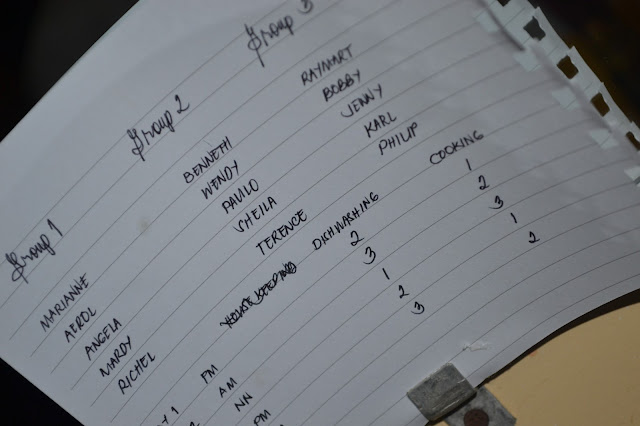 Group 1 Group 2 Group 3
MARIANNE BENNETH RAYMART
AEROL WENDY BOBBY
ANGELA PAULO JENNY
MARDY SHEILA KARL
RICHEL TERENCE PHILIP
HOUSEKEEPING DISHWASHING COOKING
Y 1 PM 2 1
AM 3 2
NN 1 3
PM 2 1
3 2